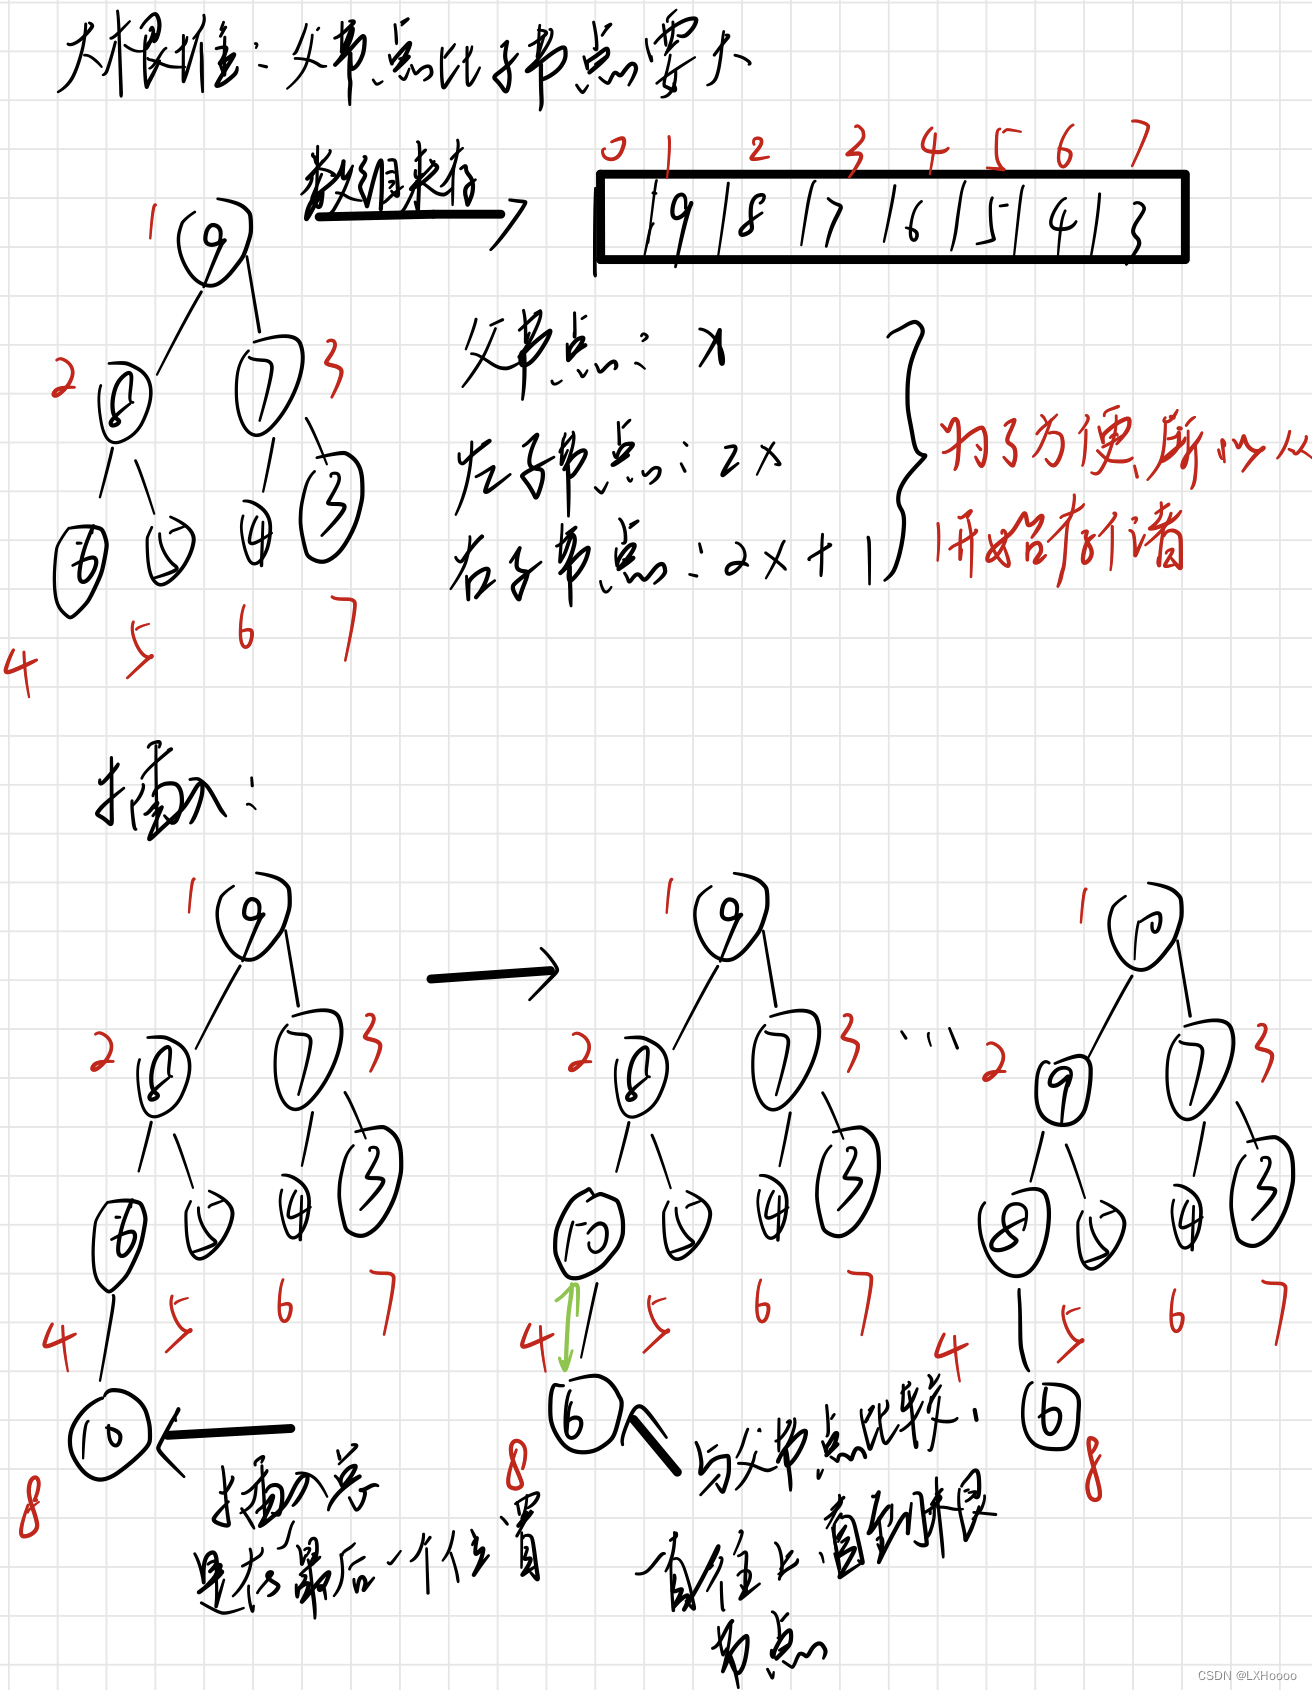 大根堆：父节点比子节点要大
数组来存
0 1 2 3 4 5 6 7
9 8 7 6 5 4 3
1 9
2 8 7 3
6 5 4 3
4 5 6 7
父节点：x
左子节点：2x
右子节点：2x+1
为了方便，所以从
1开始存储
插入：
1 9
2 8 7 3
6 5 4 3
4 5 6 7
10
8
插入总
是在最后一个位置
1 9
2 8 7 3
10 5 4 3
4 5 6 7
6
8
与父节点比较，
一直往上，直到根
节点
...
1 10
2 9 7 3
8 5 4 3
4 5 6 7
6
8
CSDN @LXHoooo